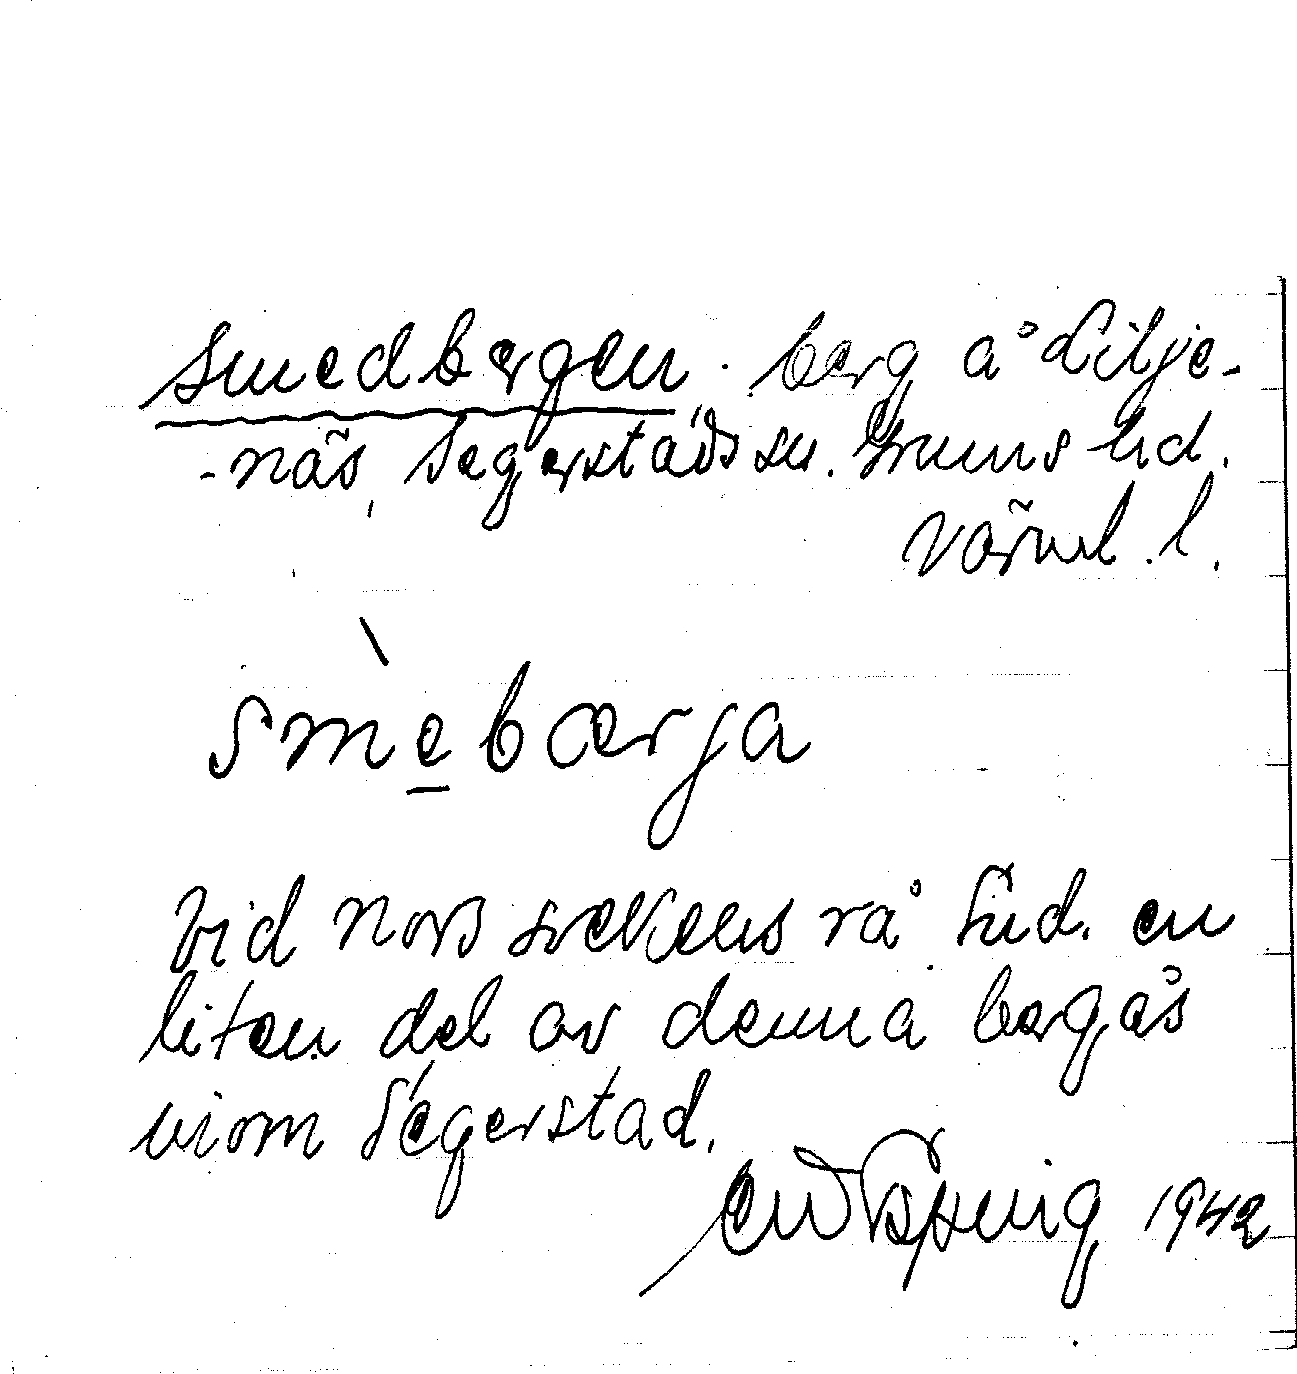 Smedbergen. berg å Lilje-
-näs, Segerstads sn. Grums hd.
Värml. l.
smèbærja
Vid Nors sockens rå. End. en
liten del av denna bergås
inom Segerstad.
1942